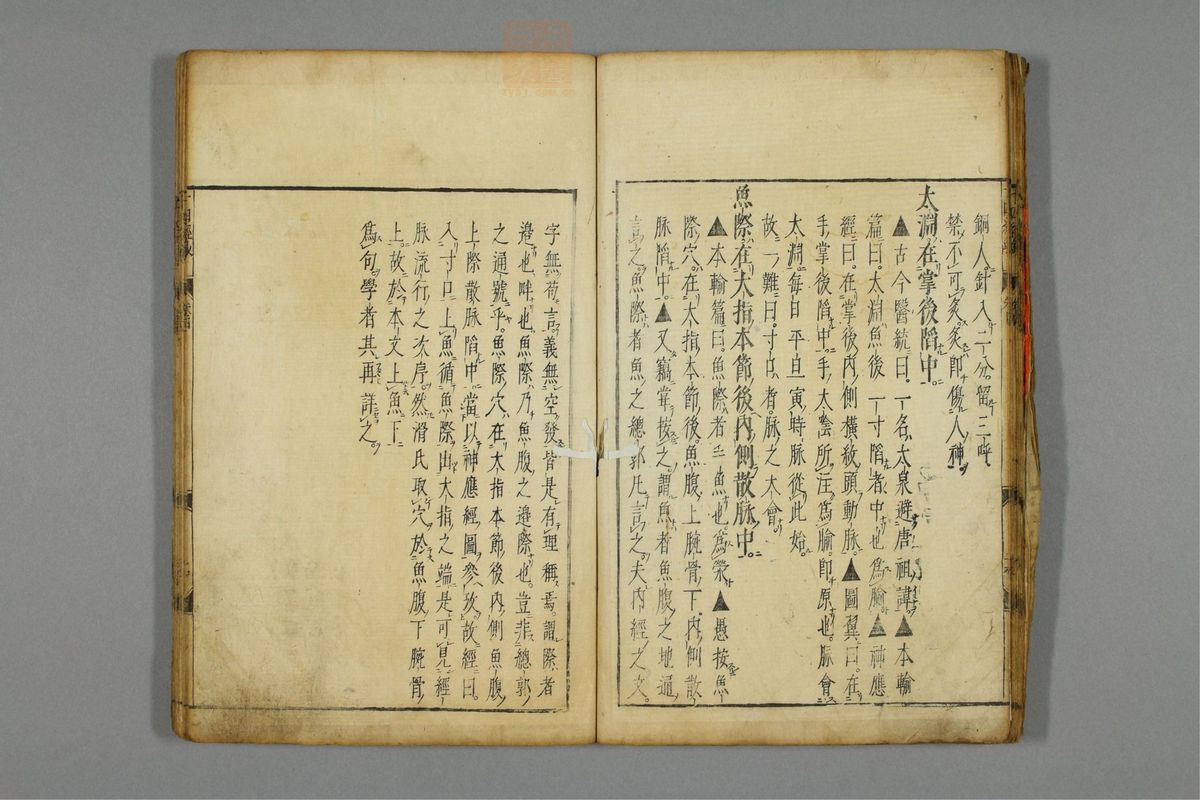 銅人針入二分留三呼
禁不可灸灸即傷人神
太淵在掌後陷中
▲古今醫統曰一名太泉避唐祖諱▲本輸
篇曰太淵魚後一寸陷者中也爲腧▲神應
經曰在掌後內側橫紋頭動脉▲圖翼曰在
手掌後陷中手太陰所注爲腧即原也脉會
太淵每日平旦寅時脉從此始
故一難曰寸口者脉之大會
魚際在大指本節後內側散脉中
▲本輸篇曰魚際者手魚也爲滎▲愚按魚
際穴在大指本節後魚腹上腕骨下內側散
脉陷中▲又竊嘗按之謂魚者魚腹之地通
言之魚際者魚之總郭凡言之夫內經之文
字無苟言義無空發皆是有理稱焉謂際者
邉也畔也魚際乃魚腹之邉際也豈非總郭
之通號乎魚際穴在大指本節後內側魚腹
上際散脉陷中當以神應經圖參攷故經曰
入寸口上魚循魚際出大指之端是可見經
脉流行之次序然滑氏取穴於魚腹下腕骨
上故於本文上魚下
爲句學者其再詳之